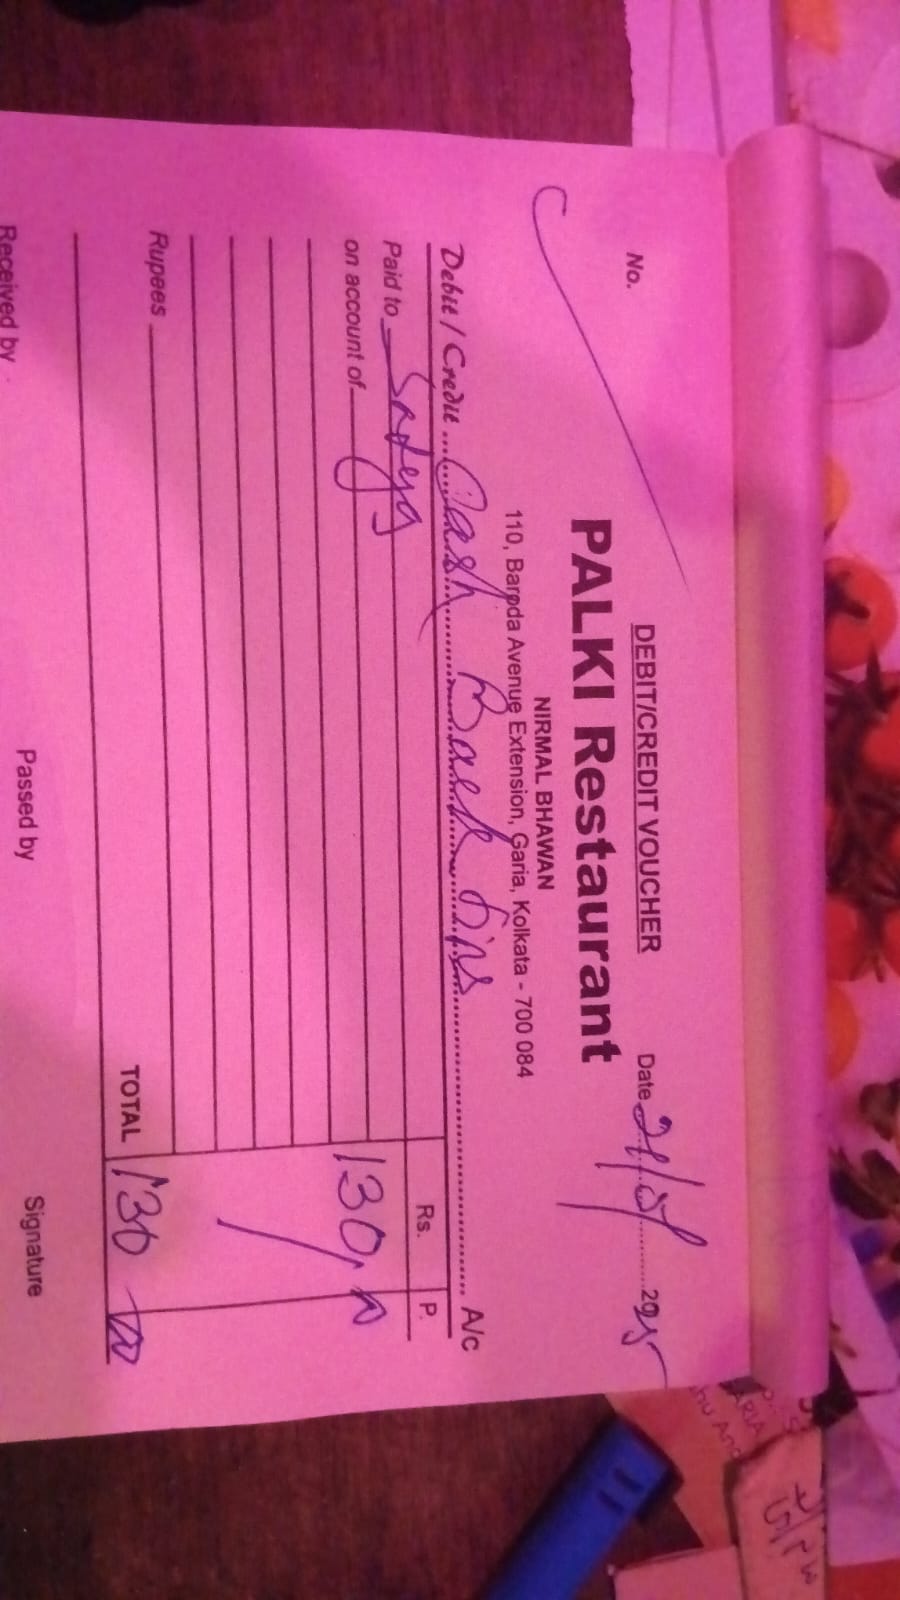 DEBIT/CREDIT VOUCHER
No.
Date 21/05/ 2025
PALKI Restaurant
NIRMAL BHAWAN
110, Baroda Avenue Extension, Garia, Kolkata - 700 084
Debit / Credit Cash A/c
Rs. P.
Paid to
on account of 130,00
Rupees
TOTAL 130 00
Received by Passed by Signature